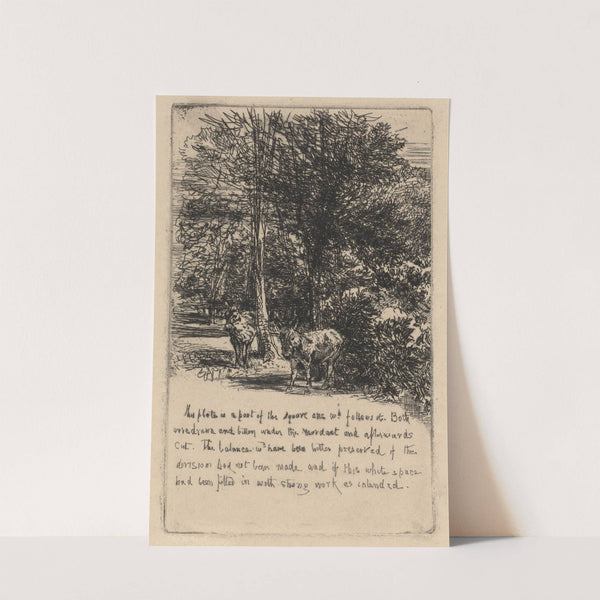 This plate is a part of the square one wʰ follows it. Both
were drawn and bitten under the mordant and afterwards
cut. The balance wᵈ have been better preserved if the
division had not been made and if this white space
had been filled in with strong work as intended.